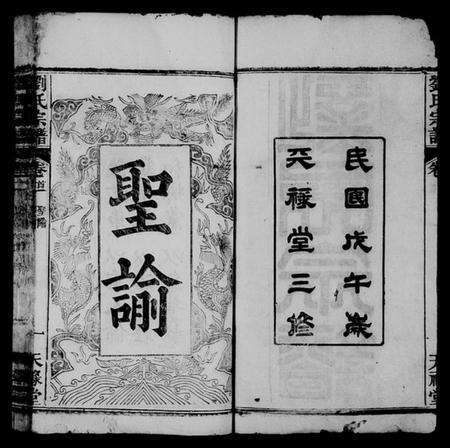 劉氏宗譜
卷
天祿堂
民國戊午歲
天祿堂三修
聖諭
劉氏宗譜
卷首
一
天祿堂